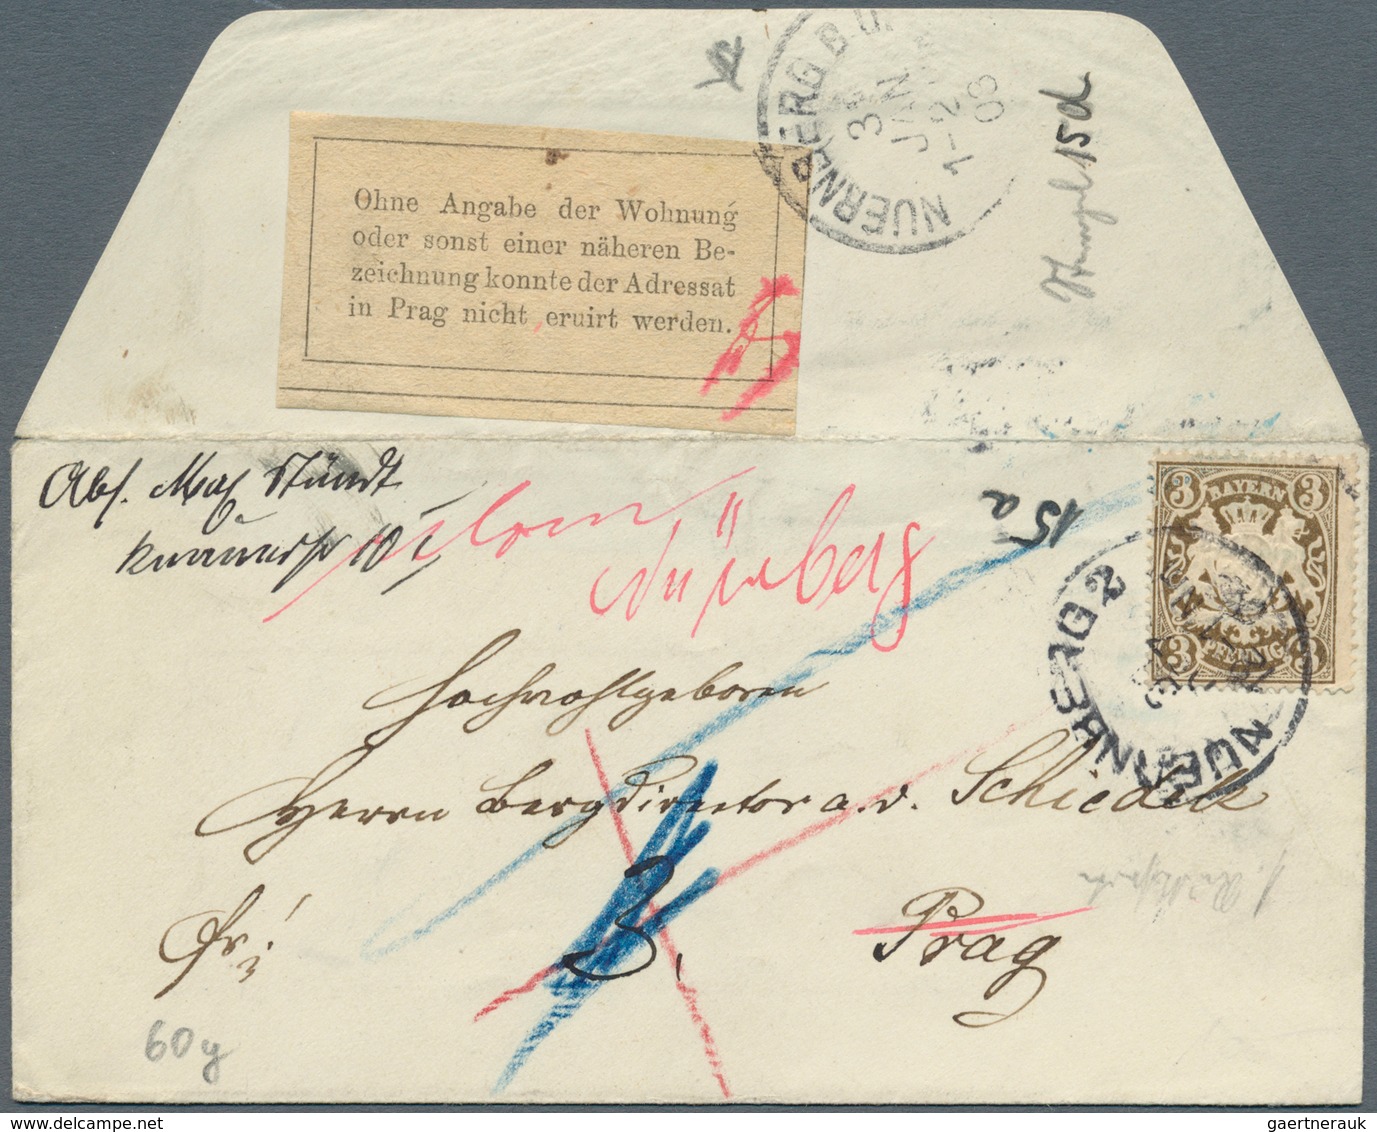 NUERNBERG B.
3
JAN
1-2
03
15d
Ohne Angabe der Wohnung
oder sonst einer näheren Be-
zeichnung konnte der Adressat
in Prag nicht eruirt werden.
Abs. Max
10
Nürnberg
15a
3 BAYERN 3
3 PFENNIG 3
NUERNBERG 2
Hochwohlgeboren
Herrn Bergdirector a. d.
Fr:
3.
Prag
60 y
www.delcampe.net
gaertnerauk